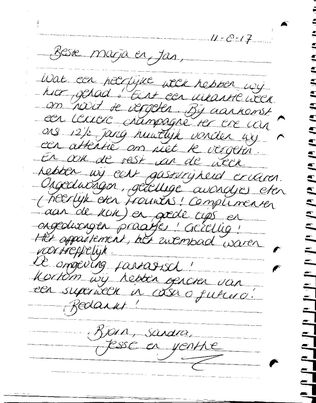 11-8-17
Beste Marja en, Jan,
Wat een heerlijke week hebben wij
hier gehad! Echt een vakantie week
om nooit te vergeten. Bij aankomst
een lekkere champagne ter ere van
ons 12½ jarig huwlijk vonden wij
een attentie om niet te vergeten.
En ook de rest van de week
hebben wij echt gastvrijheid ervaren.
Ongedwongen, gezellige avondjes eten
(heerlijk eten trouwens! Complimenten
aan de kok) en goede tips en
ongedwongen praatjes! Gezellig!
Het appartement, het zwembad waren
voortreffelijk.
De omgeving fantastisch!
Kortom wij hebben genoten van
een superweek in casa o futuro!
Bedankt!
Bjorn, Sandra,
Jesse en Yenthe